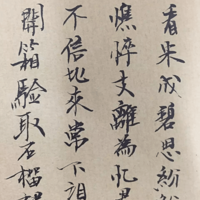 看朱成碧思紛紛
憔悴支離為憶君
不信比來常下
開箱驗取石榴裙